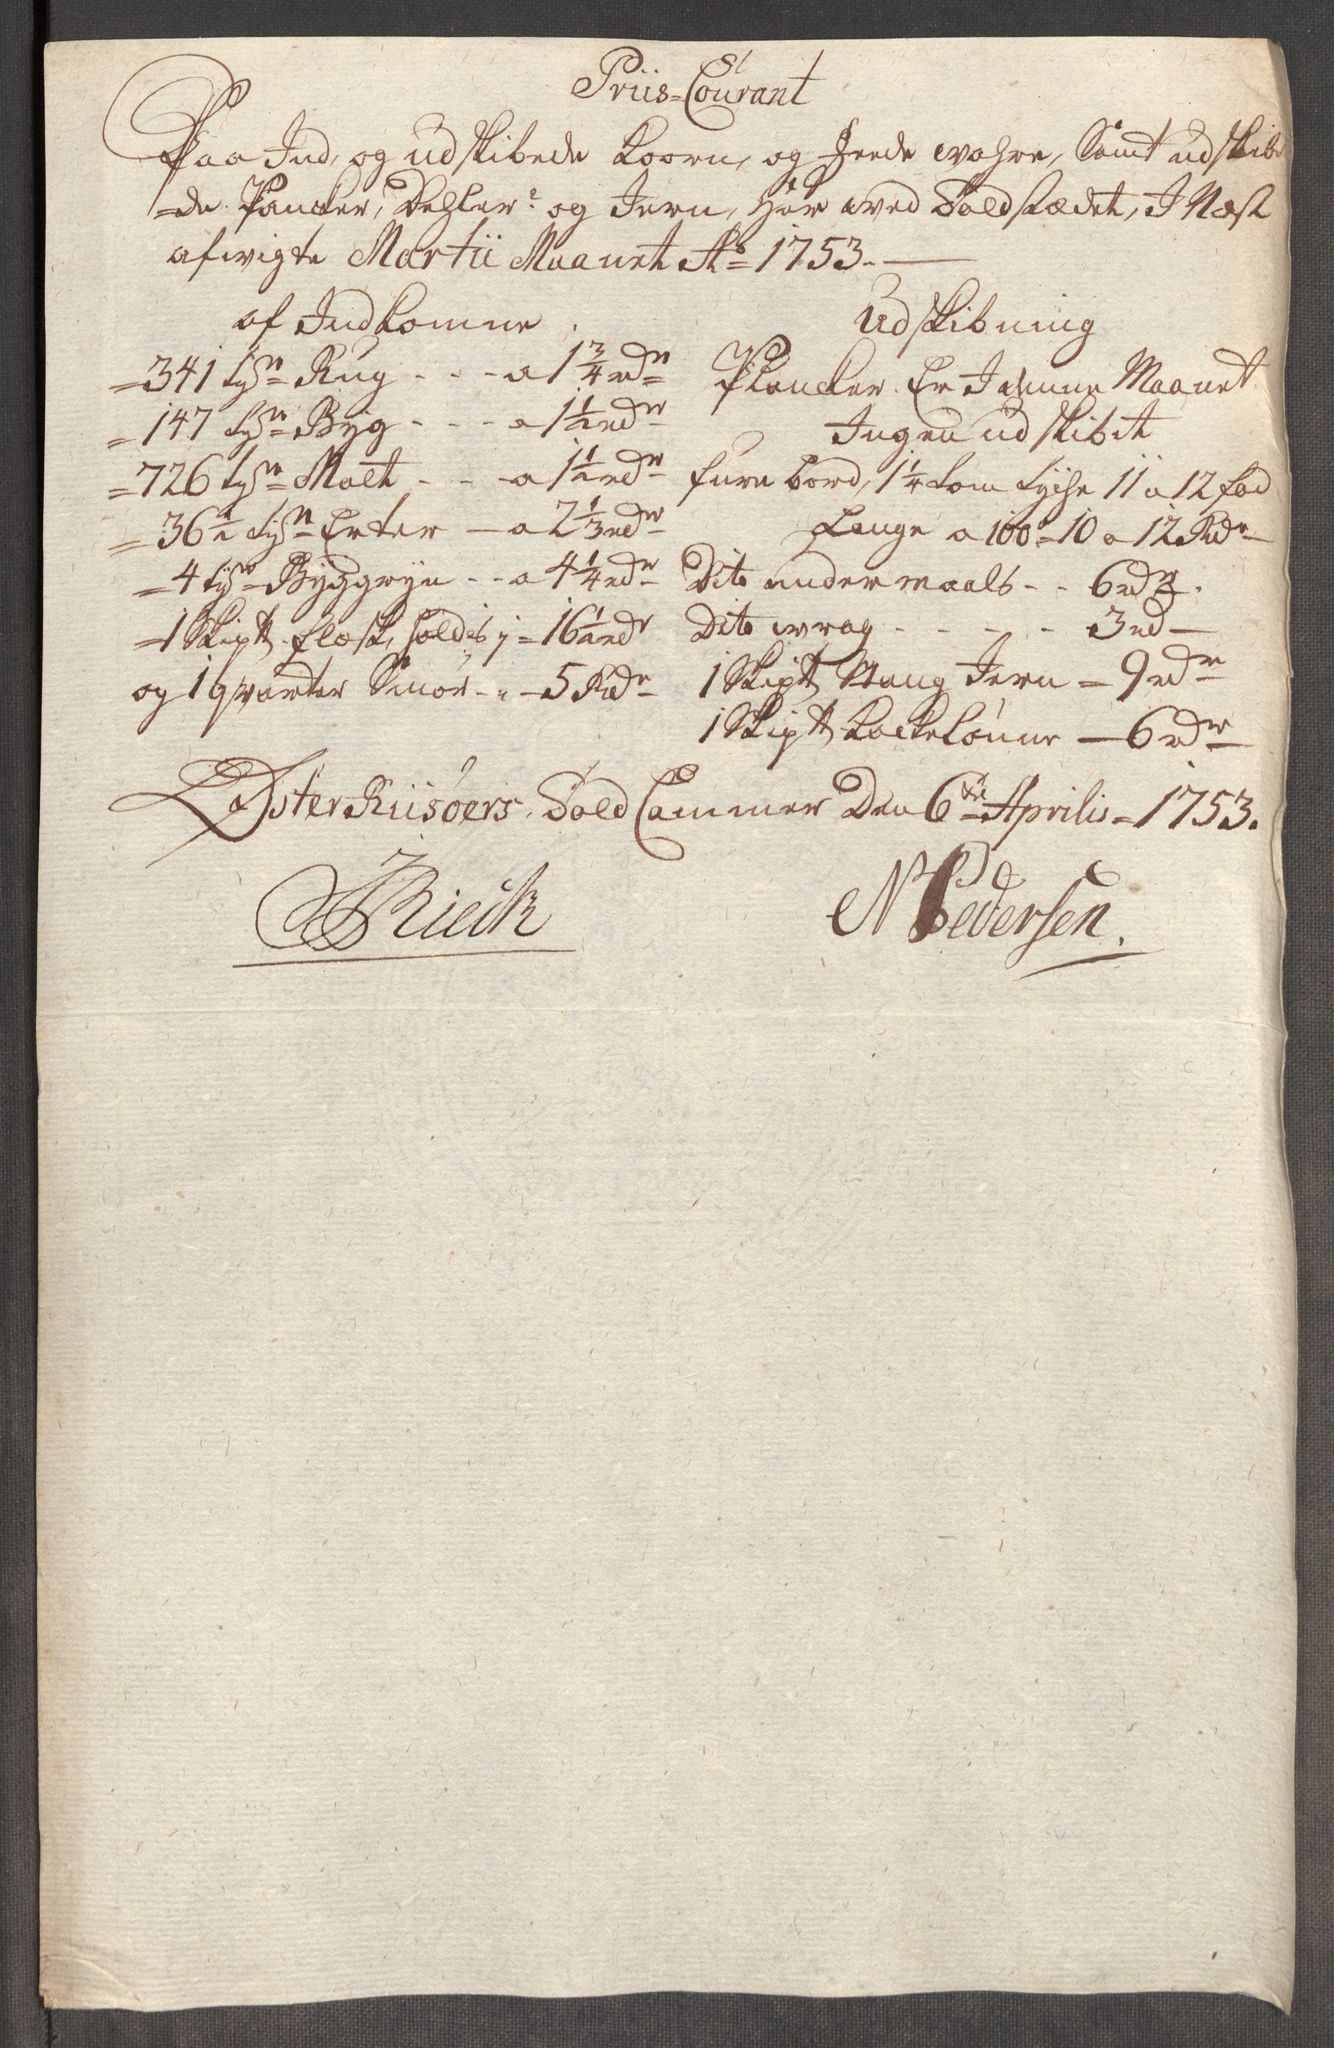 Priis-Courant
Paa Ind, og udskibede Koorn, og Feede wahre, Samt udskibe
-de Plancker, Dehler og Jern, Her wed Toldstædet, I Næst
afwigte Martii Maanet Ao 1753.
af Indkomne
=341 tr Rug - - - a 1 3/4 rdr
=147 tr Byg - - - a 1 1/2 rdr
=726 tr Malt - - - a 1 1/2 rdr
=36 1/2 tr Erter - a 2 1/3 rdr
=4 tr Byggryn - - a 4 1/4 rdr
=1 Skip℔ Flæsk, soldis j = 16 1/2 rdr
og 1 qvarter Smør - " - 5 Rdr
Udskibning
Plancker Er I denne Maanet
Ingen udskibet
furu bord, 1 1/4 tom tyche 11 a 12 fod
Lange a 100 = 10 a 12 Rdr
Dito undermaals - - 6 rdr.
Dito wrag - - - - - 3 rd
1 Skip℔ Stang Jern = 9 rdr
1 Skip℔ Kackelouner - 6 rdr
Øster Riisøers Told Cammer Den 6te Aprilis = 1753.
Rieck
N Pedersen.